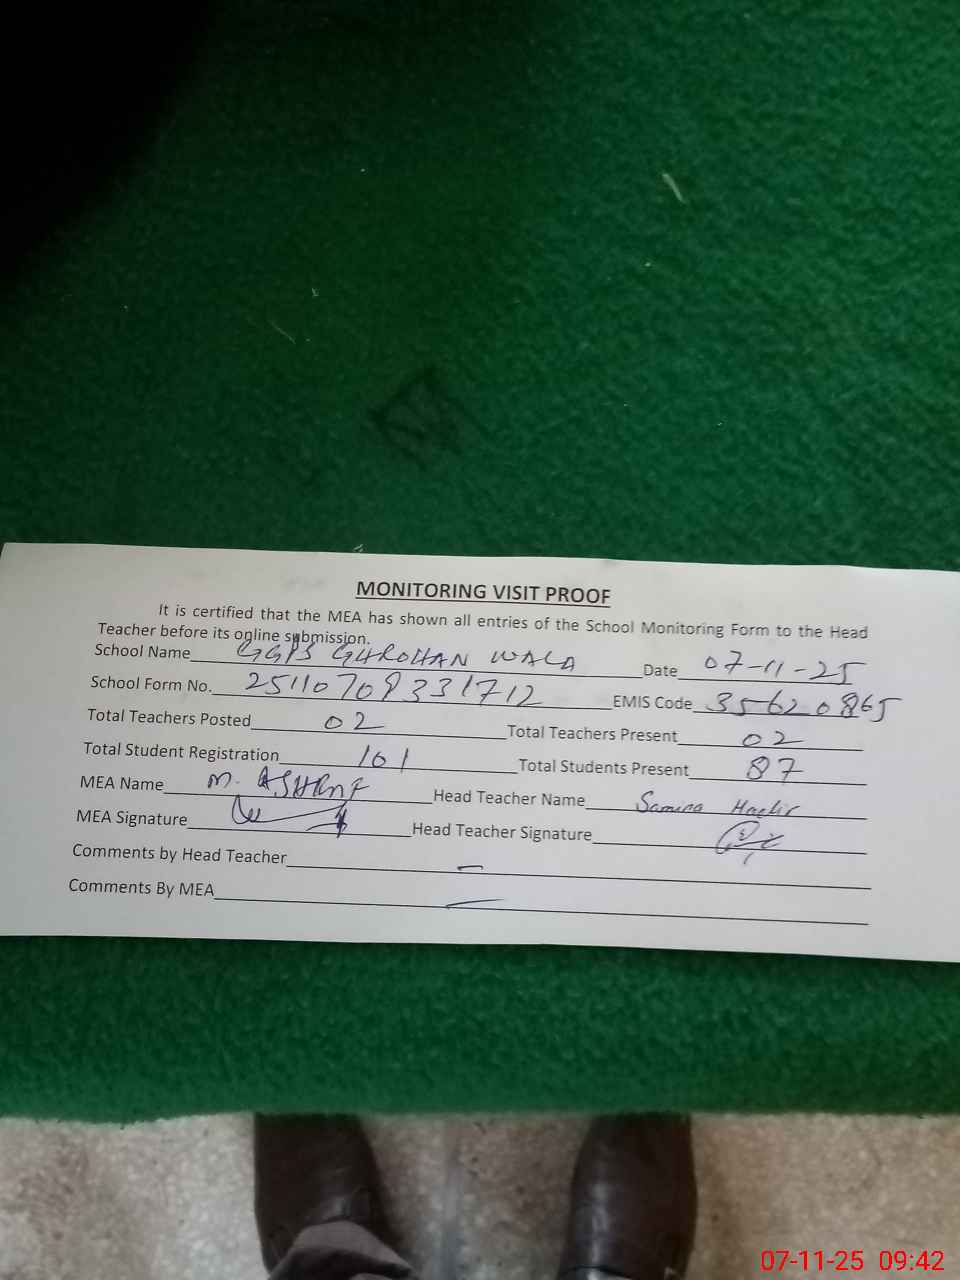 MONITORING VISIT PROOF
It is certified that the MEA has shown all entries of the School Monitoring Form to the Head
Teacher before its online submission.
School Name GGPS GHROHAN WALA Date 07-11-25
School Form No. 25110709331712 EMIS Code 35620865
Total Teachers Posted 02 Total Teachers Present 02
Total Student Registration 101 Total Students Present 87
MEA Name M. ASHRAF Head Teacher Name Samina
MEA Signature Head Teacher Signature
Comments by Head Teacher —
Comments By MEA —
07-11-25 09:42